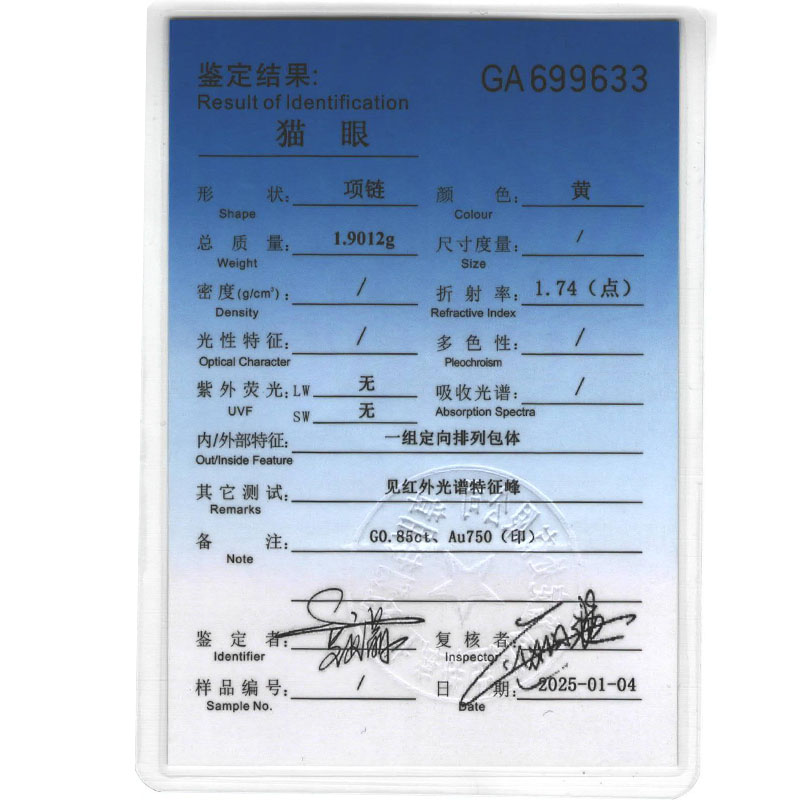 鉴定结果: GA699633
Result of Identification
猫 眼
形 状: 项链 颜 色: 黄
Shape Colour
总 质 量: 1.9012g 尺寸度量: /
Weight Size
密 度(g/cm³): / 折 射 率: 1.74(点)
Density Refractive Index
光性特征: / 多 色 性: /
Optical Character Pleochroism
紫外荧光: LW 无 吸收光谱: /
UVF SW 无 Absorption Spectra
内/外部特征: 一组定向排列包体
Out/Inside Feature
其它测试: 见红外光谱特征峰
Remarks
备 注: G0.85ct、Au750(印)
Note
鉴 定 者: 复 核 者:
Identifier Inspector
样品编号: / 日 期: 2025-01-04
Sample No. Date